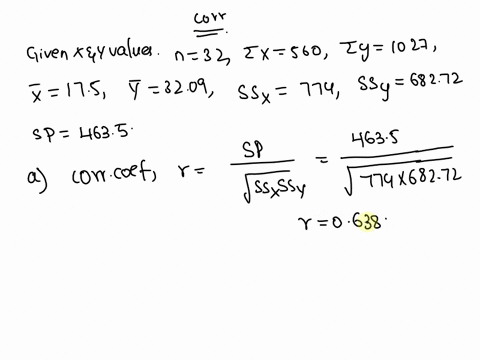 corr
Given x & y values. n=32, Σx=560, Σy=1027,
x̄=17.5, ȳ=32.09, SSx=774, SSy=682.72
SP=463.5.
a) corr.coef, r = SP/√SSxSSy = 463.5/√774×682.72
r=0.638.